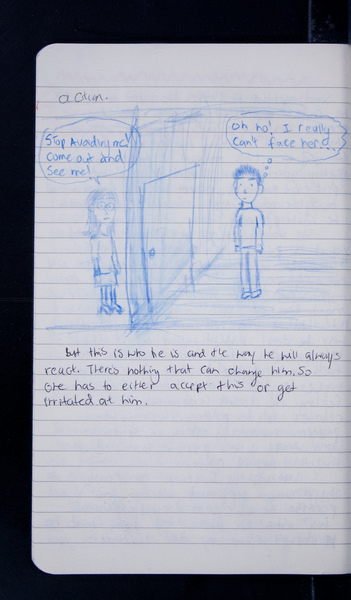 a clun.
Stop Avoading me!
Come out and
See me!
Oh no! I really
can't face her :(
but this is who he is and the way he will always
react. There's nothing that can change him. So
one has to either accept this or get
irritated at him.